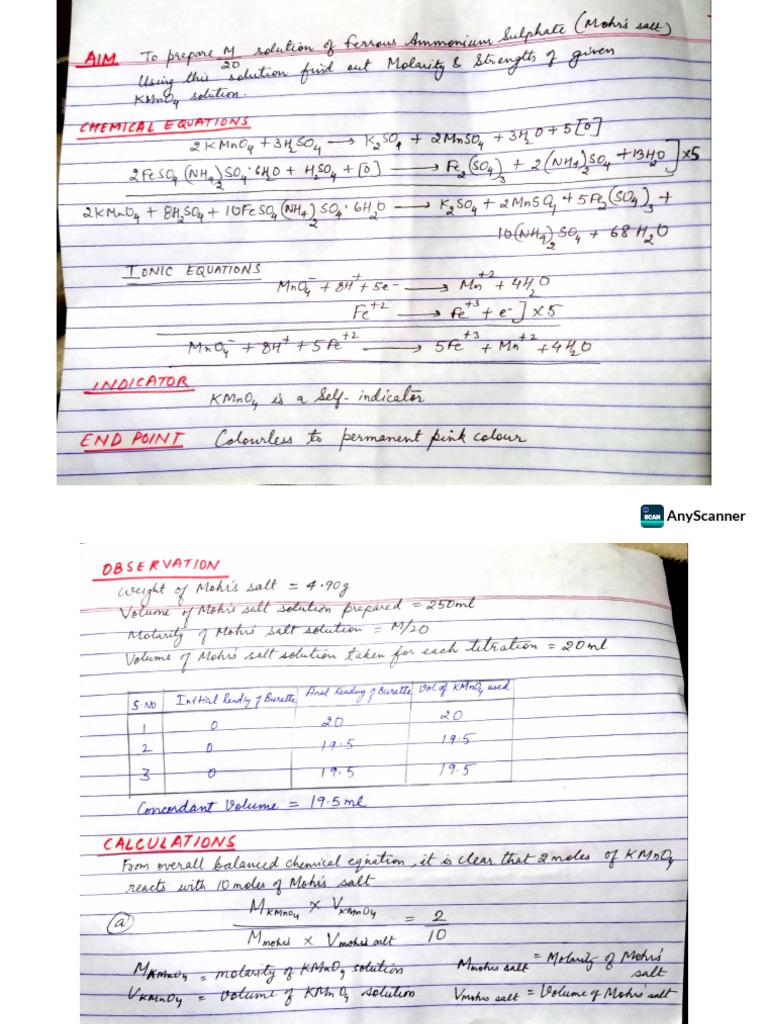 AIM To prepare M/20 solution of Ferrous Ammonium Sulphate (Mohr's salt)
Using this solution find out Molarity & Strength of given
KMnO₄ solution.
CHEMICAL EQUATIONS
2KMnO₄ + 3H₂SO₄ → K₂SO₄ + 2MnSO₄ + 3H₂O + 5[O]
2FeSO₄(NH₄)₂SO₄·6H₂O + H₂SO₄ + [O] → Fe₂(SO₄)₃ + 2(NH₄)₂SO₄ + 13H₂O] ×5
2KMnO₄ + 8H₂SO₄ + 10FeSO₄(NH₄)₂SO₄·6H₂O → K₂SO₄ + 2MnSO₄ + 5Fe₂(SO₄)₃ +
10(NH₄)₂SO₄ + 68H₂O
IONIC EQUATIONS
MnO₄⁻ + 8H⁺ + 5e⁻ → Mn⁺² + 4H₂O
Fe⁺² → Fe⁺³ + e⁻] ×5
MnO₄⁻ + 8H⁺ + 5Fe⁺² → 5Fe⁺³ + Mn⁺² + 4H₂O
INDICATOR
KMnO₄ is a Self-indicator
END POINT Colourless to permanent pink colour
SCAN AnyScanner
OBSERVATION
Weight of Mohr's salt = 4.90g
Volume of Mohr's salt solution prepared = 250ml
Molarity of Mohr's salt solution = M/20
Volume of Mohr's salt solution taken for each titration = 20ml
S.No Initial Reading of Burette Final Reading of Burette Vol of KMnO₄ used
1 0 20 20
2 0 19.5 19.5
3 0 19.5 19.5
Concordant Volume = 19.5ml
CALCULATIONS
From overall balanced chemical equation, it is clear that 2 moles of KMnO₄
reacts with 10 moles of Mohr's salt
(a) M KMnO₄ × V KMnO₄ / M mohr's × V mohr's salt = 2/10
M KMnO₄ = molarity of KMnO₄ solution M mohrs salt = Molarity of Mohr's salt
V KMnO₄ = Volume of KMnO₄ solution V mohrs salt = Volume of Mohr's salt